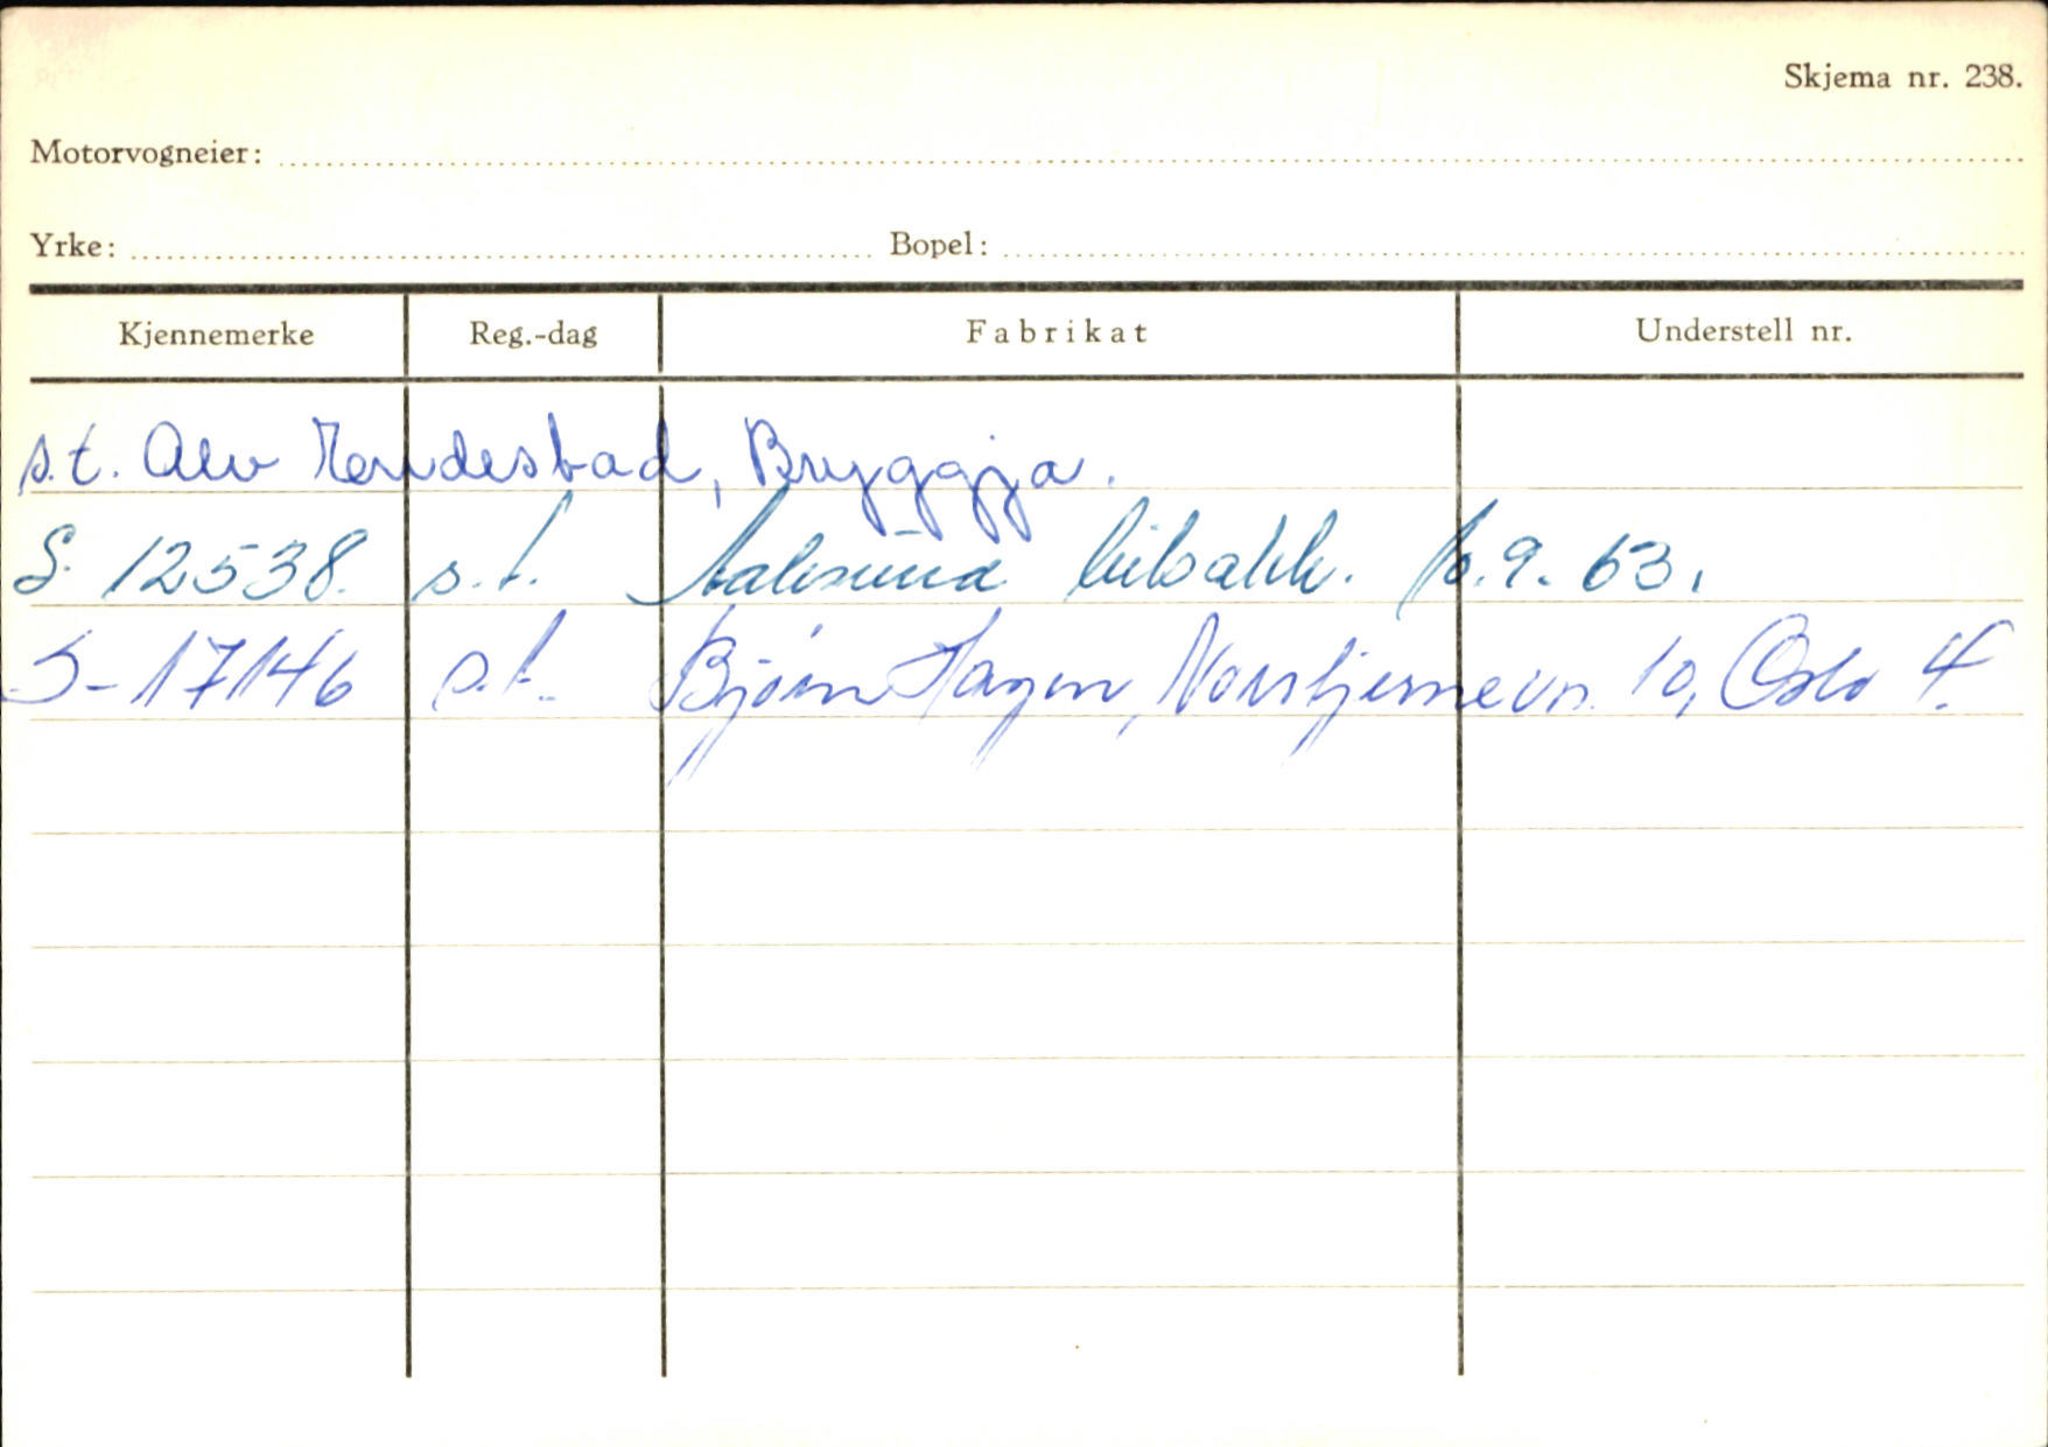 Skjema nr. 238.
Motorvogneier:
Yrke: Bopel:
Kjennemerke Reg.-dag Fabrikat Understell nr.
s.t. Alv Bryggja.
S. 12538. s.t. Aalesund bilsakk. 9. 63.
S-17146 s.t. Bjørn Hagen, 10, Oslo 4.